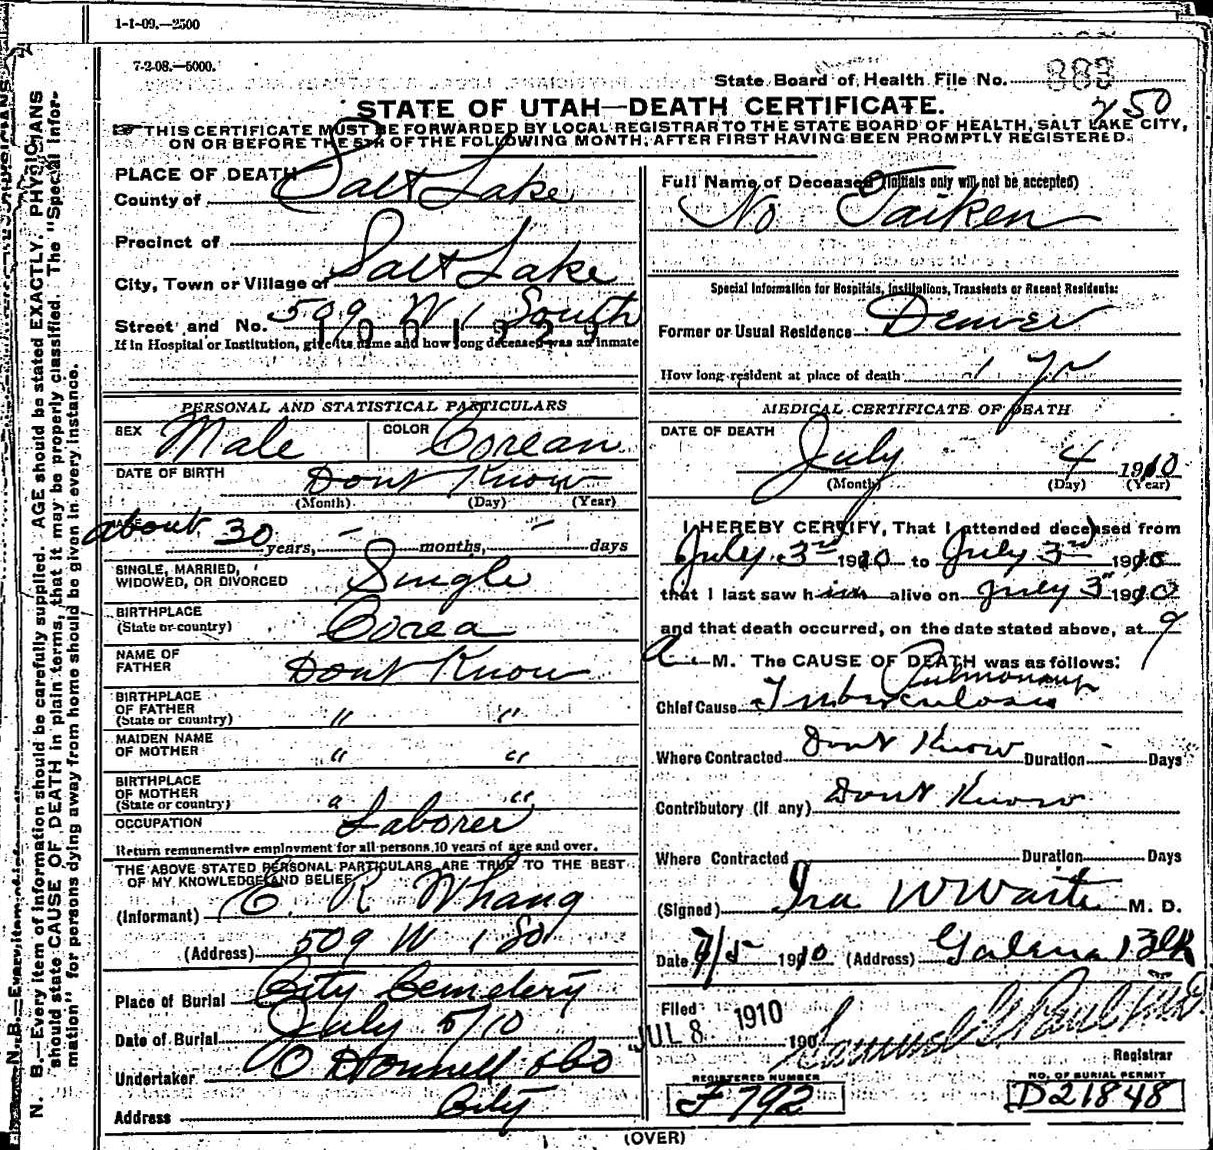 1-1-09.—2500
7-2-08.—5000.
State Board of Health File No. 883
750
STATE OF UTAH—DEATH CERTIFICATE.
THIS CERTIFICATE MUST BE FORWARDED BY LOCAL REGISTRAR TO THE STATE BOARD OF HEALTH, SALT LAKE CITY,
ON OR BEFORE THE 5TH OF THE FOLLOWING MONTH, AFTER FIRST HAVING BEEN PROMPTLY REGISTERED.
PLACE OF DEATH
County of Salt Lake
Precinct of
City, Town or Village of Salt Lake
Street and No. 509 W 1 South
If in Hospital or Institution, give its name and how long deceased was an inmate
PERSONAL AND STATISTICAL PARTICULARS
SEX Male COLOR Corean
DATE OF BIRTH Dont Know
(Month) (Day) (Year)
about 30 years, months, days
SINGLE, MARRIED,
WIDOWED, OR DIVORCED Single
BIRTHPLACE
(State or country) Corea
NAME OF
FATHER Dont Know
BIRTHPLACE
OF FATHER
(State or country) " "
MAIDEN NAME
OF MOTHER " "
BIRTHPLACE
OF MOTHER
(State or country) " "
OCCUPATION Laborer
Return remunerative employment for all persons 10 years of age and over.
THE ABOVE STATED PERSONAL PARTICULARS ARE TRUE TO THE BEST
OF MY KNOWLEDGE AND BELIEF
(Informant) C. R Whang
(Address) 509 W 1 So
Place of Burial City Cemetery
Date of Burial July 5/10
Undertaker O Donnell &Co
Address City
Full Name of Deceased (Initials only will not be accepted)
No Taiken
Special Information for Hospitals, Institutions, Transients or Recent Residents:
Former or Usual Residence Denver
How long resident at place of death 1 yr
MEDICAL CERTIFICATE OF DEATH
DATE OF DEATH
July 4 1910
(Month) (Day) (Year)
I HEREBY CERTIFY, That I attended deceased from
July 3rd 1910 to July 3rd 1910
that I last saw him alive on July 3rd 1910
and that death occurred, on the date stated above, at 9
a M. The CAUSE OF DEATH was as follows:
Pulmonary
Chief Cause Tuberculosis
Where Contracted Dont Know Duration - Days
Contributory (if any) Dont Know
Where Contracted Duration Days
(Signed) Ira W Waite M. D.
Date 7/5 1910 (Address) Galena Blk
Filed JUL 8 1910 190
Samuel G Paul MD
Registrar
REGISTERED NUMBER
F 792
NO. OF BURIAL PERMIT
D21848
(OVER)
N. B.—Every item of information should be carefully supplied. AGE should be stated EXACTLY. PHYSICIANS
should state CAUSE OF DEATH in plain terms, that it may be properly classified. The "Special Infor-
mation" for persons dying away from home should be given in every instance.